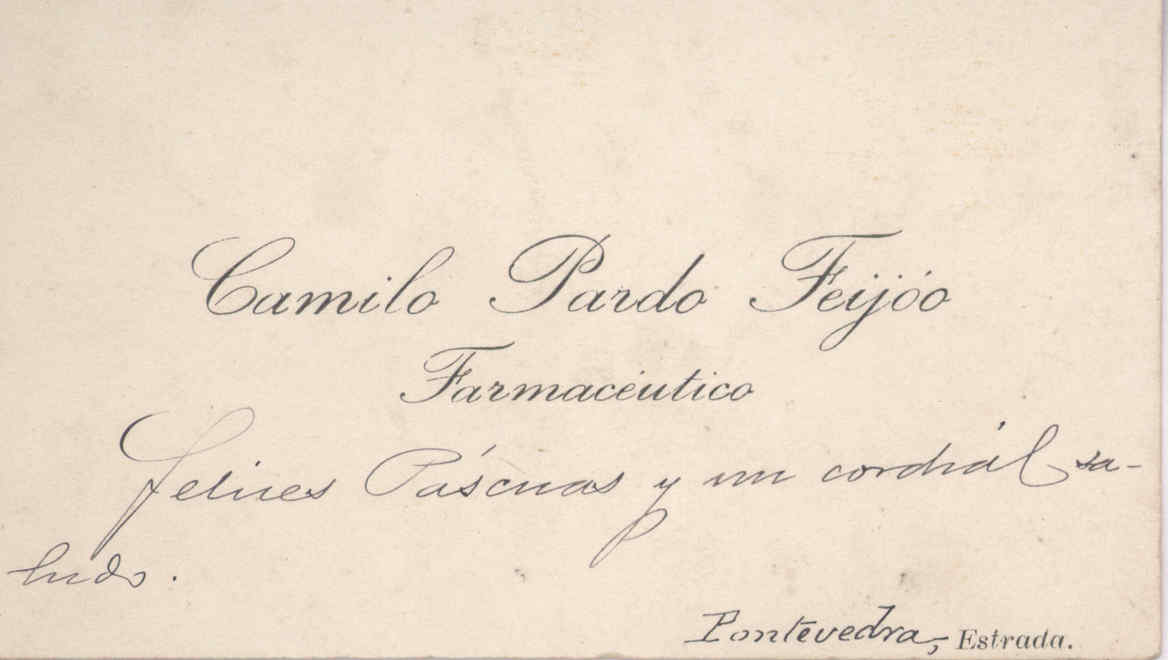 Camilo Pardo Feijóo
Farmacéutico
Felices Páscuas y un cordiál sa-
ludo.
Pontevedra, Estrada.